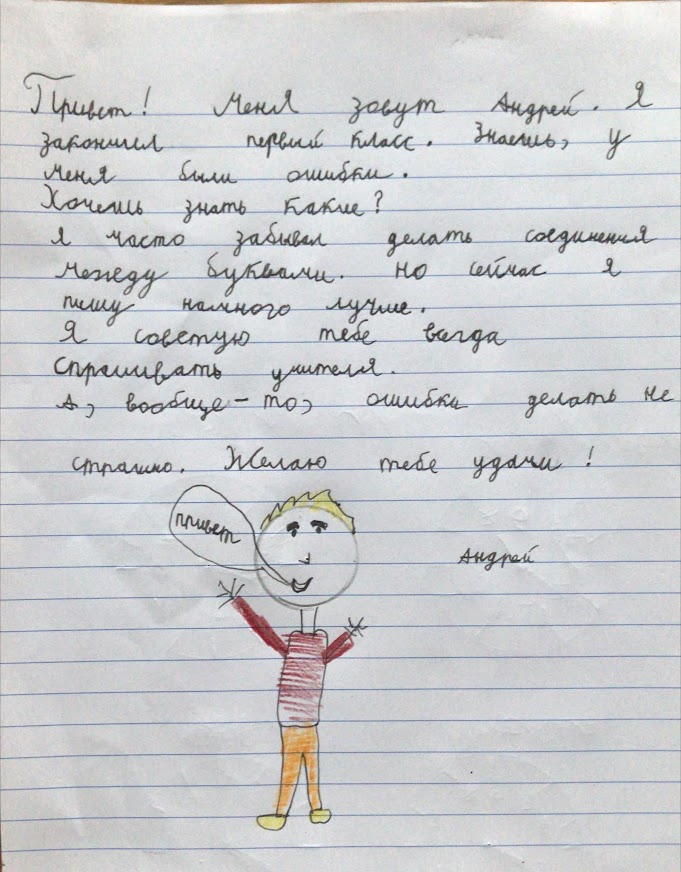 Привет! Меня зовут Андрей. Я
закончил первый класс. Знаешь, у
меня были ошибки.
Хочешь знать какие?
Я часто забывал делать соединения
между буквами. Но сейчас я
пишу намного лучше.
Я советую тебе всегда
спрашивать учителя.
А, вообще-то, ошибки делать не
страшно. Желаю тебе удачи!
привет
Андрей